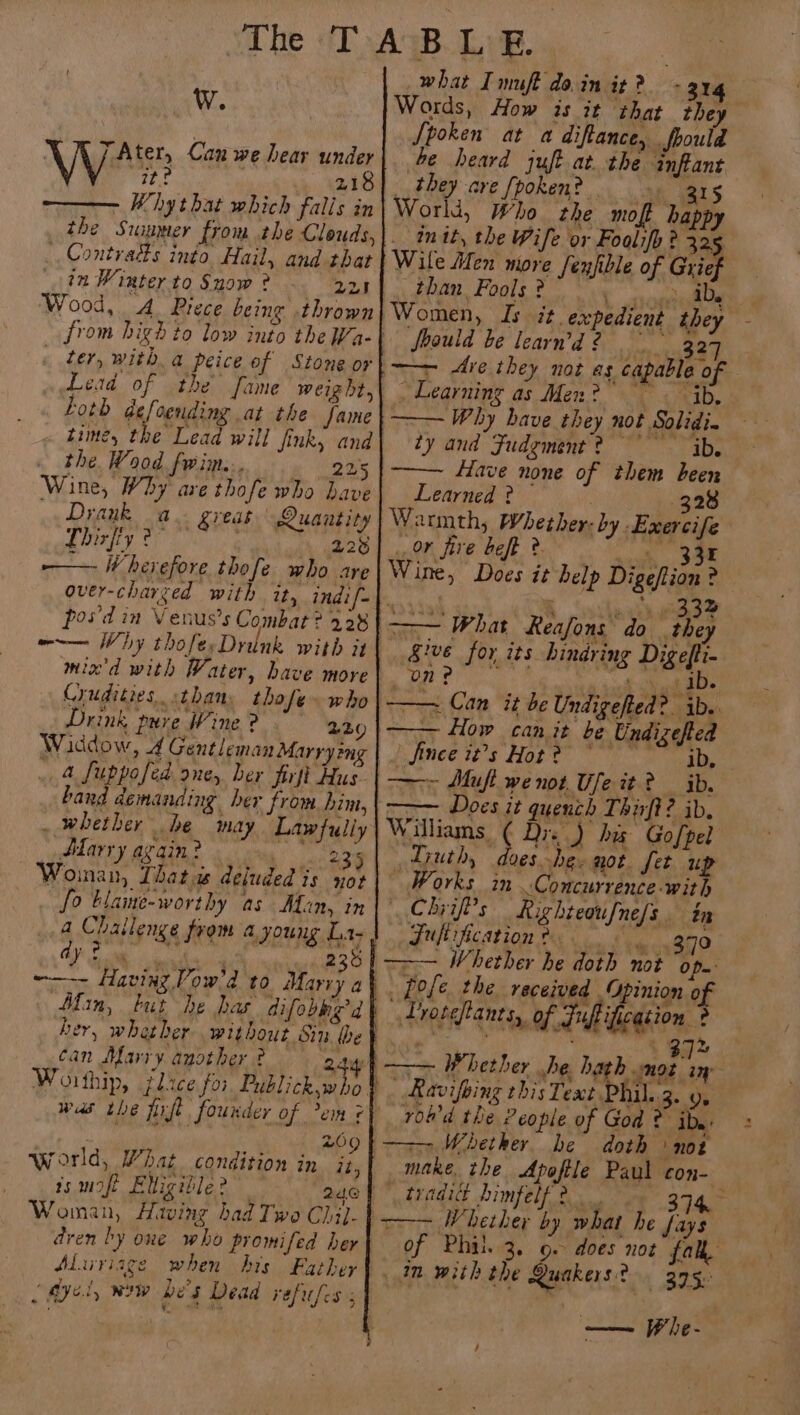 The TABLE.
W.
WAter, Can we hear under
it? 218
——— Why that which falls in
the Summer from the Clouds,
Contracts into Hail, and that
in Winter to Snow? 221
Wood, A Piece being thrown
from high to low into the Wa-
ter, with a peice of Stone or
Lead of the ſame weight,
both deſcending at the ſame
time, the Lead will ſink, and
the Wood ſwim. 225
Wine, Why are thoſe who have
Drank a great Quantity
Thirſty? 228
——— Wherefore thoſe who are
over-charged with it, indiſ-
pos'd in Venus's Combat? 228
——— Why thoſe, Drunk with it
mix'd with Water, have more
Crudities than thoſe who
Drink pure Wine? 229
Widdow, A Gentleman Marrying
a ſuppoſed one, her firſt Hus-
band demanding her from him,
whether he may Lawfully
Marry again? 235
Woman, That is deluded is not
ſo blame-worthy as Man, in
a Challenge from a young La-
dy? 238
——— Having Vow'd to Marry a
Man, but he has diſoblig'd
her, whether without Sin ſhe
can Marry another? 244
Worſhip, place for Publick, who
was the firſt founder of 'em?
269
World, What condition in it,
is moſt Elligible? 240
Woman, Having had Two Chil-
dren by one who promiſed her
Marriage when his Father
dyed, now he's Dead refuſes;
what I muſt do in it? 314
Words, How is it that they
ſpoken at a diſtance, ſhould
be heard juſt at the inſtant
they are ſpoken? 315
World, Who the moſt happy
in it, the Wiſe or Fooliſh? 325
Wiſe Men more ſenſible of Grief
than Fools? ib.
Women, Is it expedient they
ſhould be learn'd? 327
——— Are they not as capable of
Learning as Men? ib.
——— Why have they not Solidi-
ty and Judgment? ib.
——— Have none of them been
Learned? 328
Warmth, Whether by Exerciſe
or fire beſt? 331
Wine, Does it help Digeſtion?
332
——— What Reaſons do they
give for its hindring Digeſti-
on? ib.
——— Can it be Undigeſted? ib.
——— How can it be Undigeſted
ſince it's Hot? ib.
——— Muſt we not Uſe it? ib.
——— Does it quench Thirſt? ib.
Williams (Dr.) his Goſpel
Truth, does he not ſet up
Works in Concurrence with
Chriſt's Righteouſneſs in
Juſtification? 370
——— Whether he doth not op-
poſe the received Opinion of
Proteſtants, of Juſtification?
372
——— Whether he hath not in
Raviſhing this Text Phil. 3. 9.
rob'd the People of God? ib.
——— Whether he doth not
make the Apoſtle Paul con-
tradict himſelf? 374
——— Whether by what he ſays
of Phil. 3. 9. does not fall
in with the Quakers? 375
——— Whe-